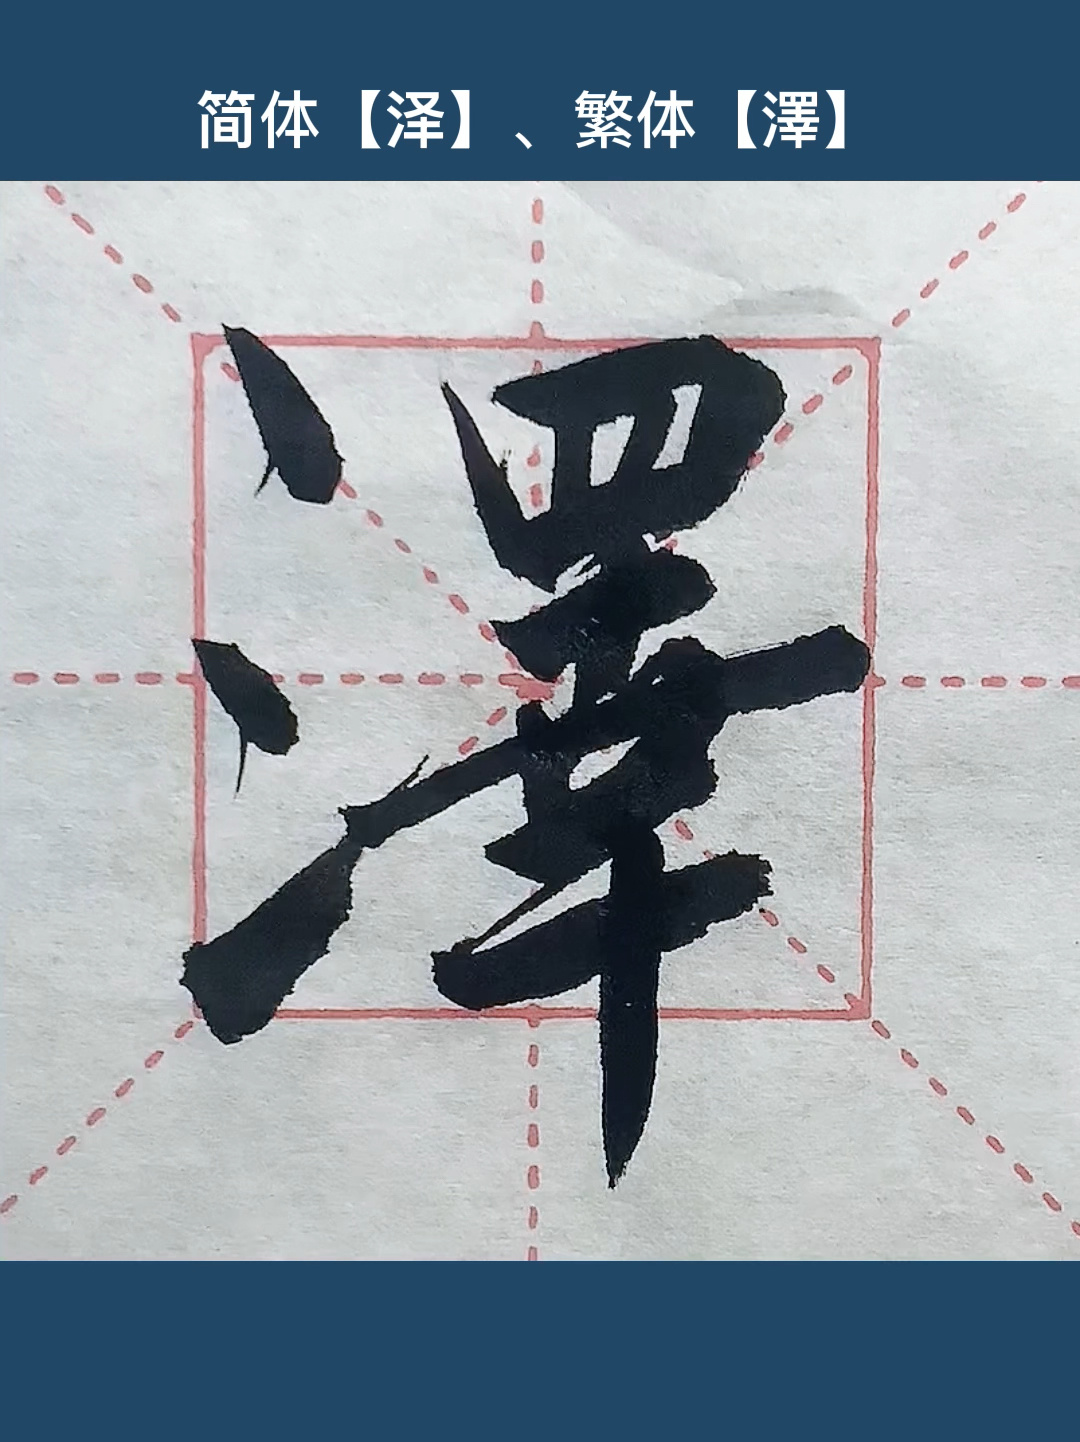 简体【泽】、繁体【澤】
澤